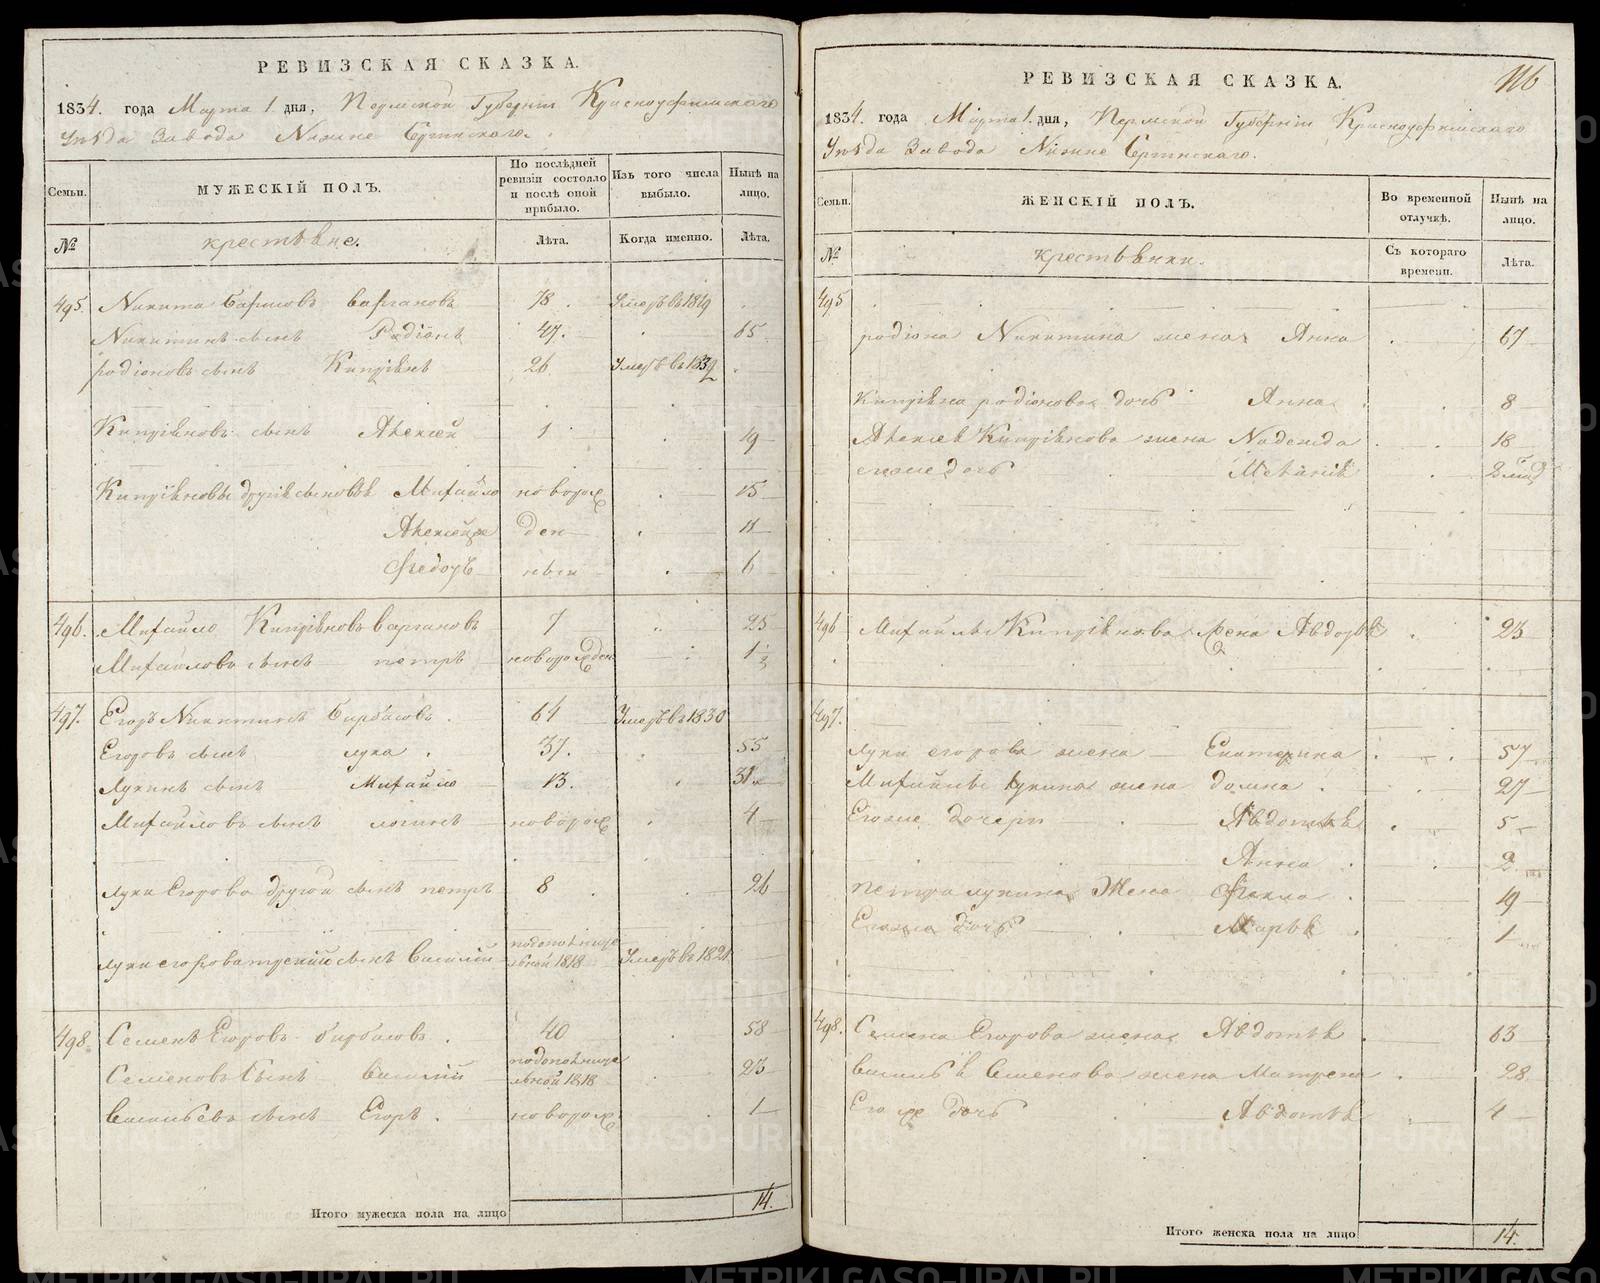 РЕВИЗСКАЯ СКАЗКА.
1834. года Марта 1. дня, Пермской Губернiи Красноуфимскаго
Уѣзда Завода Нижне Сергинскаго.
Семьи.
МУЖЕСКIЙ ПОЛЪ.
По послѣдней ревизiи состояло и послѣ оной прибыло.
Изъ того числа выбыло.
Нынѣ на лицо.
№
крестьяне.
Лѣта.
Когда именно.
Лѣта.
495. Никита Варгановъ 78. Умеръ въ 1819
Никитинъ сынъ Родiонъ 47. 65
Родiоновъ сынъ Кипрiянъ 26 Умеръ въ 1832
Кипрiяновъ сынъ Алексей 1 19
Кипрiяновы другiе сыновья Михайло новорож 15
ден 11
Федоръ ныи 6
496. Михайло Кипрiяновъ Варгановъ 7 25
Михайловъ сынъ петръ новорожден 1 1/2
497. Егоръ Никитинъ Бирбасовъ 64 Умеръ въ 1830
Егоровъ сынъ лука 37. 55
Лукинъ сынъ Михайло 13. 31
Михайловъ сынъ логинъ новорож 4
луки Егорова другой сынъ петръ 8 26
луки егорова третий сынъ Василiй 1818 Умеръ въ 1821
498. Семенъ Егоровъ Бирбасовъ 40 58
Семеновъ Сынъ Василiй 1818 23
Васильевъ сынъ Егоръ. новорож 1
Итого мужеска пола на лицо 14.
РЕВИЗСКАЯ СКАЗКА.
1834. года Марта 1. дня, Пермской Губернiи Красноуфимскаго
Уѣзда Завода Нижне Сергинскаго.
Семьи.
ЖЕНСКIЙ ПОЛЪ.
Во временной отлучкѣ.
Нынѣ на лицо.
№
крестьянки.
Съ котораго времени.
Лѣта.
495
родiона Никитина жена Анна 67
Кипрiяна родiонова дочь Анна 8
Алексея Кипрiянова жена Надежда 18
егоже дочь
496 Михайлы Кипрiянова жена Авдотья 23
497.
луки егорова жена Екатерина 57
Михайлы лукина жена домна 27
Егоже дочери Авдотья 5
Анна 2
петра лукина Жена Фекла 19
Егоже дочь Марья 1
498. Семена Егорова жена Авдотья 63
Василья Семенова жена Матрена 28
Егоже дочь Авдотья 4
Итого женска пола на лицо 14.
METRIKI.GASO-URAL.RU